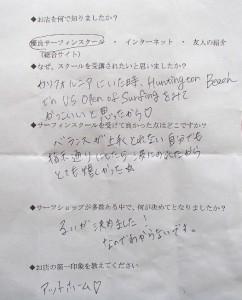 ◆お店を何で知りましたか？
優良サーフィンスクール ・ インターネット ・ 友人の紹介
（総合サイト）
◆なぜ、スクールを受講されたいと思いましたか？
カリフォルニアにいた時、Huntington Beach
でのUS Open of Surfingをみて
かっこいいと思ったから♡
◆サーフィンスクールを受けて良かった点はどこですか？
バランスが上手くとれない自分でも
指示通りにしたら波にのれたから
とても嬉しかった☆
◆サーフショップが多数ある中で、何が決めてとなりましたか？
るいが決めました！
なのでわからないです。
◆お店の第一印象を教えてください
アットホーム♡